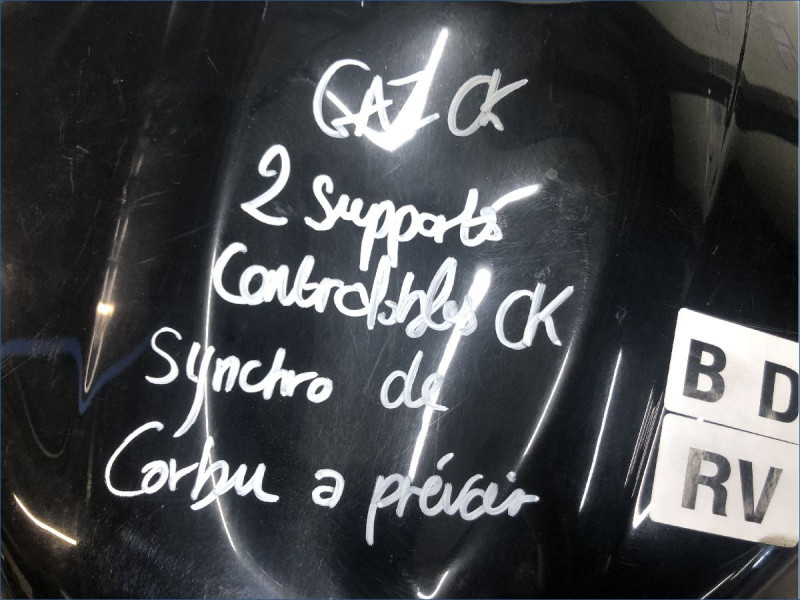 GAZ OK
2 supports
Controlables OK
Synchro de
Carbu a prévoir
B D
RV